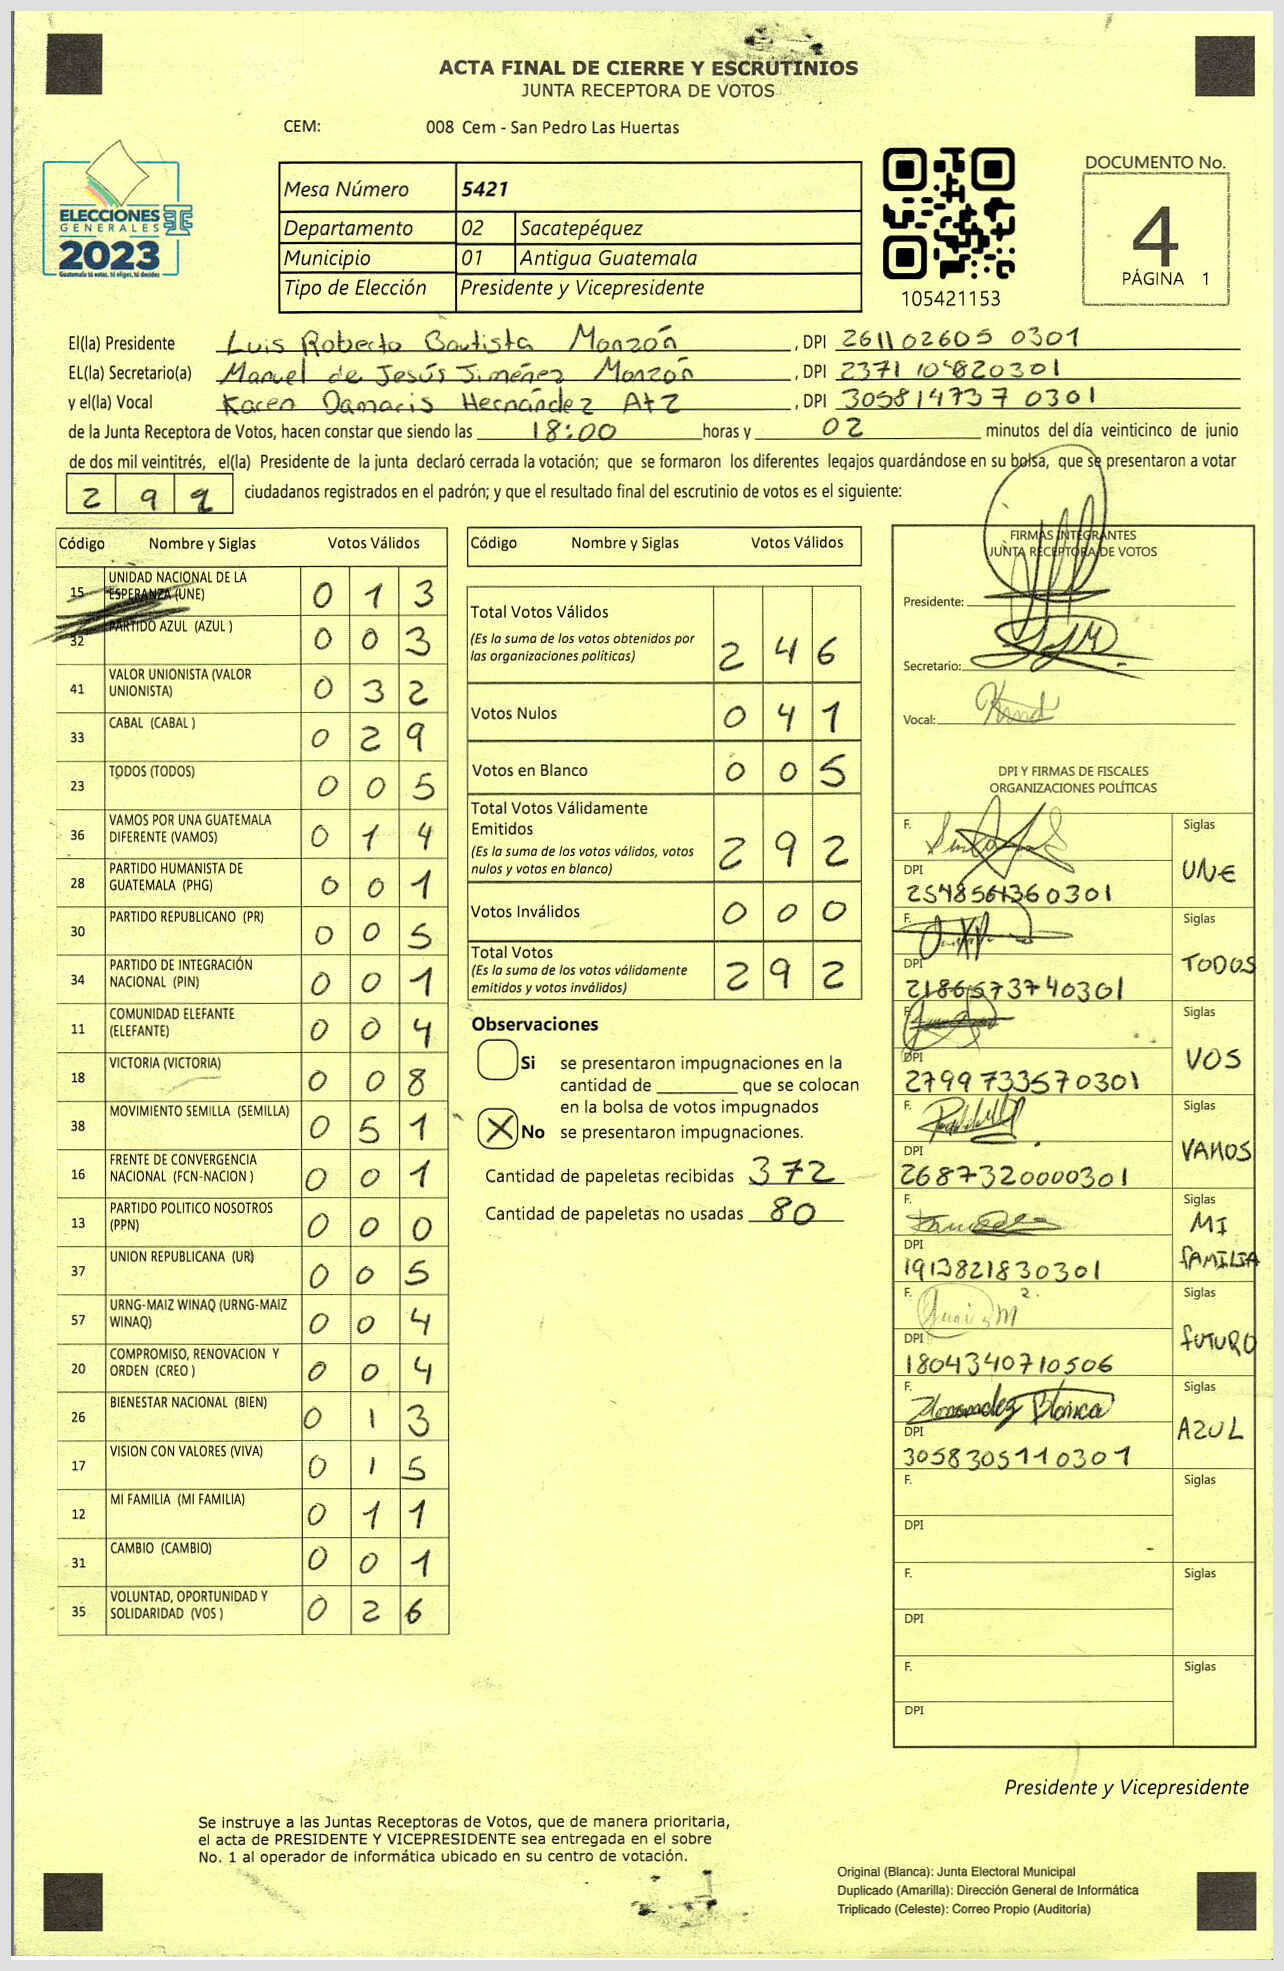 ACTA FINAL DE CIERRE Y ESCRUTINIOS
JUNTA RECEPTORA DE VOTOS
CEM: 008 Cem - San Pedro Las Huertas
ELECCIONES
GENERALES
2023
Guatemala tú votas, tú eliges, tú decides
Mesa Número 5421
Departamento 02 Sacatepéquez
Municipio 01 Antigua Guatemala
Tipo de Elección Presidente y Vicepresidente
105421153
DOCUMENTO No.
4
PÁGINA 1
El(la) Presidente Luis Roberto Bautista Monzón, DPI 261102605 0301
EL(la) Secretario(a) Manuel de Jesús Jiménez Monzón, DPI
y el(la) Vocal Karen Damaris Hernández, DPI 305814737 0301
de la Junta Receptora de Votos, hacen constar que siendo las 18:00 horas y 02 minutos del día veinticinco de junio
de dos mil veintitrés, el(la) Presidente de la junta declaró cerrada la votación; que se formaron los diferentes legajos guardándose en su bolsa, que se presentaron a votar
29 ciudadanos registrados en el padrón; y que el resultado final del escrutinio de votos es el siguiente:
Código Nombre y Siglas Votos Válidos
15 UNIDAD NACIONAL DE LA
ESPERANZA (UNE) 0 1 3
32 PARTIDO AZUL (AZUL ) 0 0 3
41 VALOR UNIONISTA (VALOR
UNIONISTA) 0 3 2
33 CABAL (CABAL ) 0 2 9
23 TODOS (TODOS) 0 0 5
36 VAMOS POR UNA GUATEMALA
DIFERENTE (VAMOS) 0 1 4
28 PARTIDO HUMANISTA DE
GUATEMALA (PHG) 0 0 1
30 PARTIDO REPUBLICANO (PR) 0 0 5
34 PARTIDO DE INTEGRACIÓN
NACIONAL (PIN) 0 0 1
11 COMUNIDAD ELEFANTE
(ELEFANTE) 0 0 4
18 VICTORIA (VICTORIA) 0 0 8
38 MOVIMIENTO SEMILLA (SEMILLA) 0 5 1
16 FRENTE DE CONVERGENCIA
NACIONAL (FCN-NACION ) 0 0 1
13 PARTIDO POLITICO NOSOTROS
(PPN) 0 0 0
37 UNION REPUBLICANA (UR) 0 0 5
57 URNG-MAIZ WINAQ (URNG-MAIZ
WINAQ) 0 0 4
20 COMPROMISO, RENOVACION Y
ORDEN (CREO ) 0 0 4
26 BIENESTAR NACIONAL (BIEN) 0 1 3
17 VISION CON VALORES (VIVA) 0 1 5
12 MI FAMILIA (MI FAMILIA) 0 1 1
31 CAMBIO (CAMBIO) 0 0 1
35 VOLUNTAD, OPORTUNIDAD Y
SOLIDARIDAD (VOS ) 0 2 6
Código Nombre y Siglas Votos Válidos
Total Votos Válidos
(Es la suma de los votos obtenidos por
las organizaciones políticas) 2 4 6
Votos Nulos 0 4 1
Votos en Blanco 0 0 5
Total Votos Válidamente
Emitidos
(Es la suma de los votos válidos, votos
nulos y votos en blanco) 2 9 2
Votos Inválidos 0 0 0
Total Votos
(Es la suma de los votos válidamente
emitidos y votos inválidos) 2 9 2
Observaciones
Si se presentaron impugnaciones en la
cantidad de ________ que se colocan
en la bolsa de votos impugnados
X No se presentaron impugnaciones.
Cantidad de papeletas recibidas 372
Cantidad de papeletas no usadas 80
FIRMAS INTEGRANTES
JUNTA RECEPTORA DE VOTOS
Presidente:
Secretario:
Vocal:
DPI Y FIRMAS DE FISCALES
ORGANIZACIONES POLÍTICAS
F. Siglas
DPI UNE
F. Siglas
DPI TODOS
2186573740301
F. Siglas
DPI VOS
2799733570301
F. Siglas
DPI VAMOS
2687320000301
F. Siglas
DPI MI FAMILIA
1913821830301
F. Siglas
DPI FUTURO
1804340710506
F. Siglas
DPI AZUL
3058305110301
F. Siglas
DPI
F. Siglas
DPI
F. Siglas
DPI
Presidente y Vicepresidente
Se instruye a las Juntas Receptoras de Votos, que de manera prioritaria,
el acta de PRESIDENTE Y VICEPRESIDENTE sea entregada en el sobre
No. 1 al operador de informática ubicado en su centro de votación.
Original (Blanca): Junta Electoral Municipal
Duplicado (Amarilla): Dirección General de Informática
Triplicado (Celeste): Correo Propio (Auditoría)